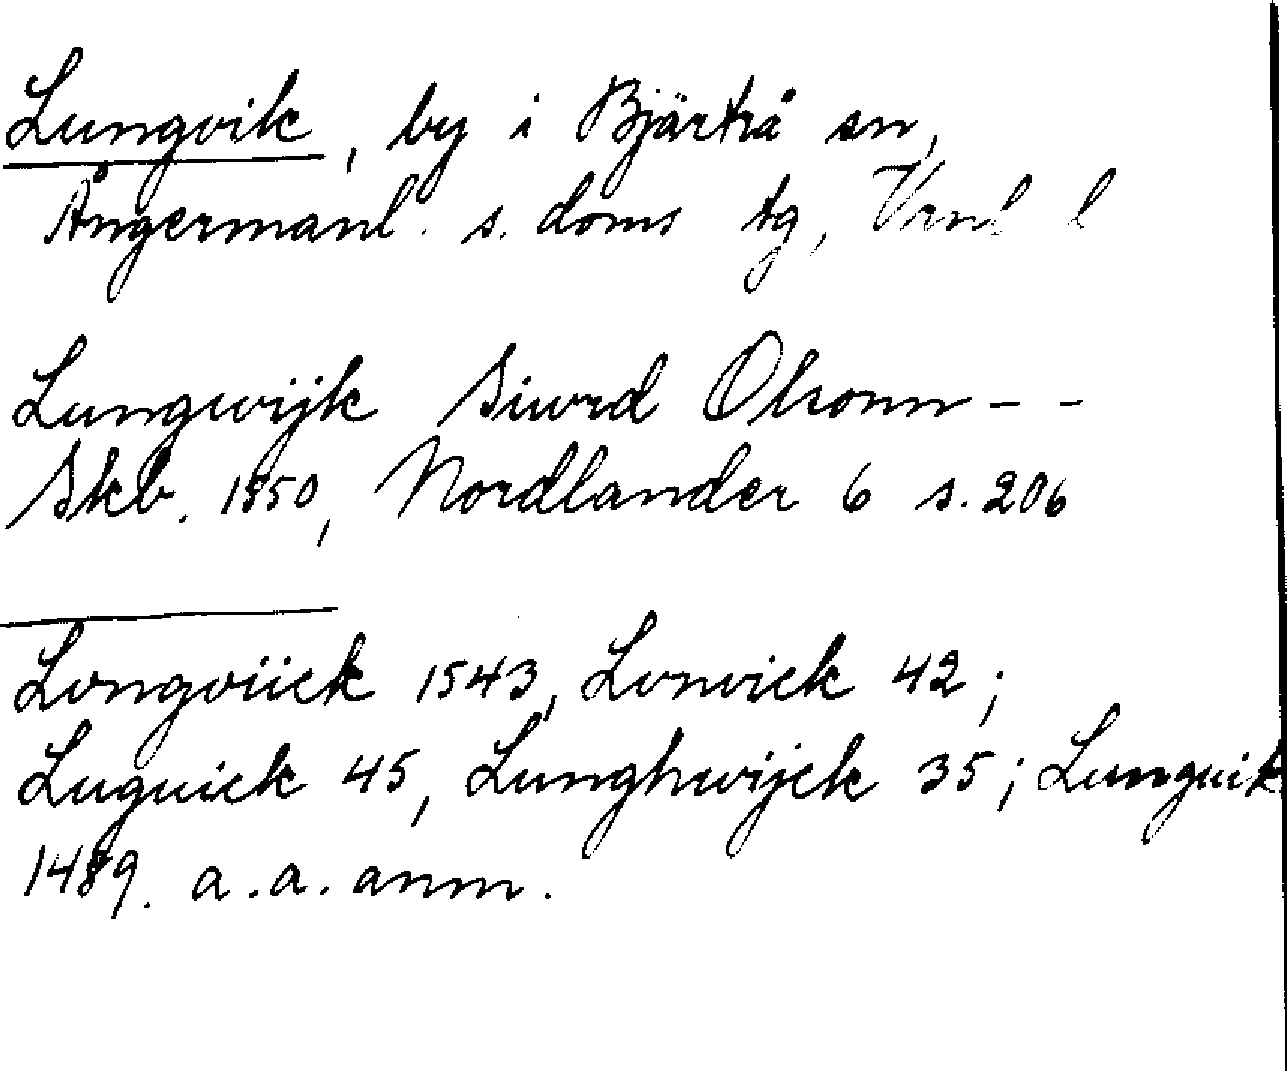 Lungvik, by i Bjärtrå sn,
Ångermanl. s. doms tg, Vrnl l
Lungwijk Siurd Olsonn - -
Skb. 1550, Nordlander 6 s. 206
Longviick 1543, Lonvick 42;
Luguick 45, Lunghwijck 35; Lunguik
1489. a.a. anm.